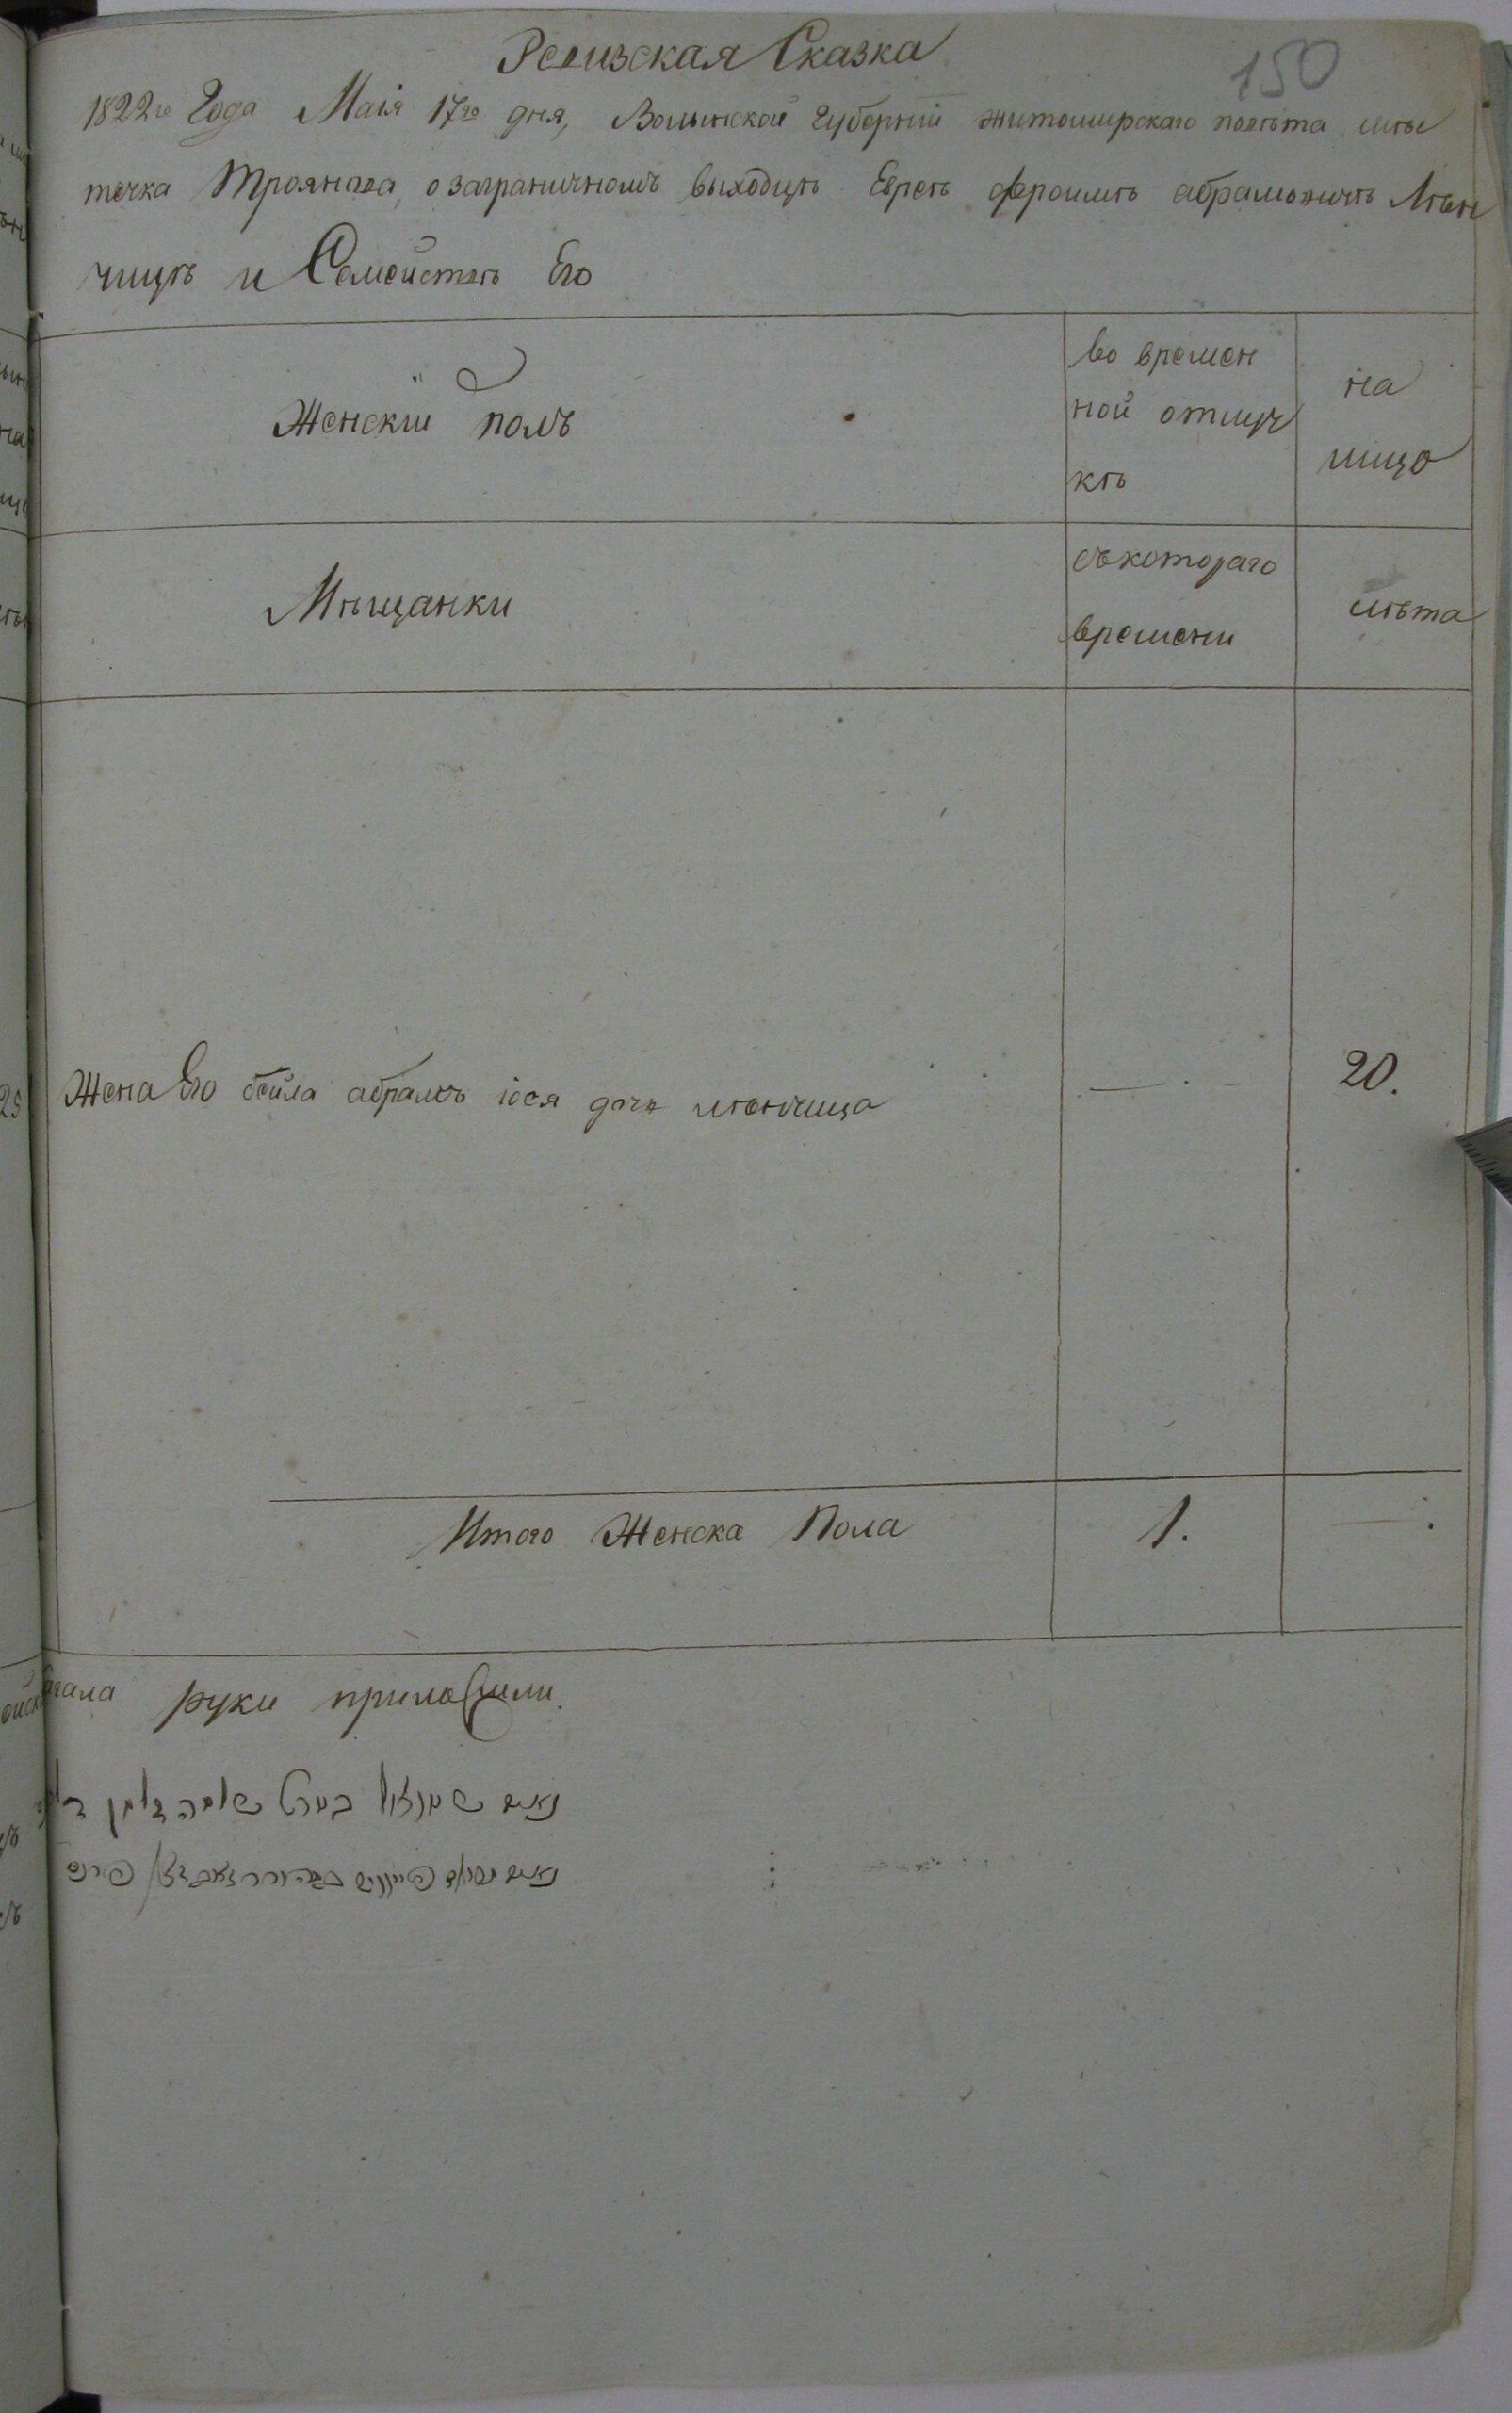 Ревизская Сказка
150
1822го Года Маія 17го дня, Волынской Губерніи житомирскаго повѣта мѣс
течка Троянова, о заграничномъ выходцѣ Евреѣ фроимѣ абрамовичѣ Лѣн
чицѣ и Семействѣ Его
Женский полъ
во времен
ной отлуч
кѣ
на
лицо
Мѣщанки
съкотораго
времени
лѣта
25 Жена Его бейла абрамъ іося дочь лѣнчица
20.
Итого Женска Пола
1.
—.
кагала руки приложили.
נאום
נאום